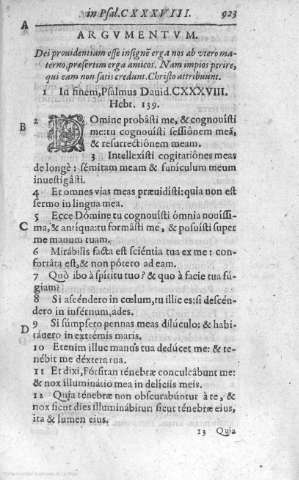 in Psal. CXXXVIII. 923
A
ARGVMENTVM.
Dei prouidentiam esse insignē erga nos ab vtero ma-
terno, præsertim erga amicos. Nam impios perire,
qui eam non satis credunt. Christo attribuunt.
1 In finem, Psalmus Dauid. CXXXVIII.
Hebr. 139.
B
2 DOmine probásti me, & cognouísti
me: tu cognouísti sessiónem meā,
& resurrectiónem meam.
3 Intellexísti cogitatiónes meas
de longè: sémitam meam & funículum meum
inuestigásti.
4 Et omnes vias meas præuidísti: quia non est
sermo in lingua mea.
5 Ecce Dómine tu cognouísti ómnia nouíssi-
C
ma, & antíqua: tu formásti me, & posuísti super
me manum tuam.
6 Mirábilis facta est sciéntia tua ex me: con-
fortáta est, & non pótero ad eam.
7 Quò ibo à spíritu tuo? & quò à facie tua fú-
giam?
8 Si ascéndero in cœlum, tu illic es: si descén-
dero in infernum, ades.
D
9 Si súmpsero pennas meas dilúculo: & habi-
táuero in extrémis maris.
10 Etenim illuc manus tua dedúcet me: & te-
nébit me déxtera tua.
11 Et dixi, Fórsitan ténebræ conculcábunt me:
& nox illuminátio mea in delíciis meis.
12 Quia ténebræ non obscurabúntur à te, &
nox sicut dies illuminábitur: sicut ténebræ eius,
ita & lumen eius.
13 Quia